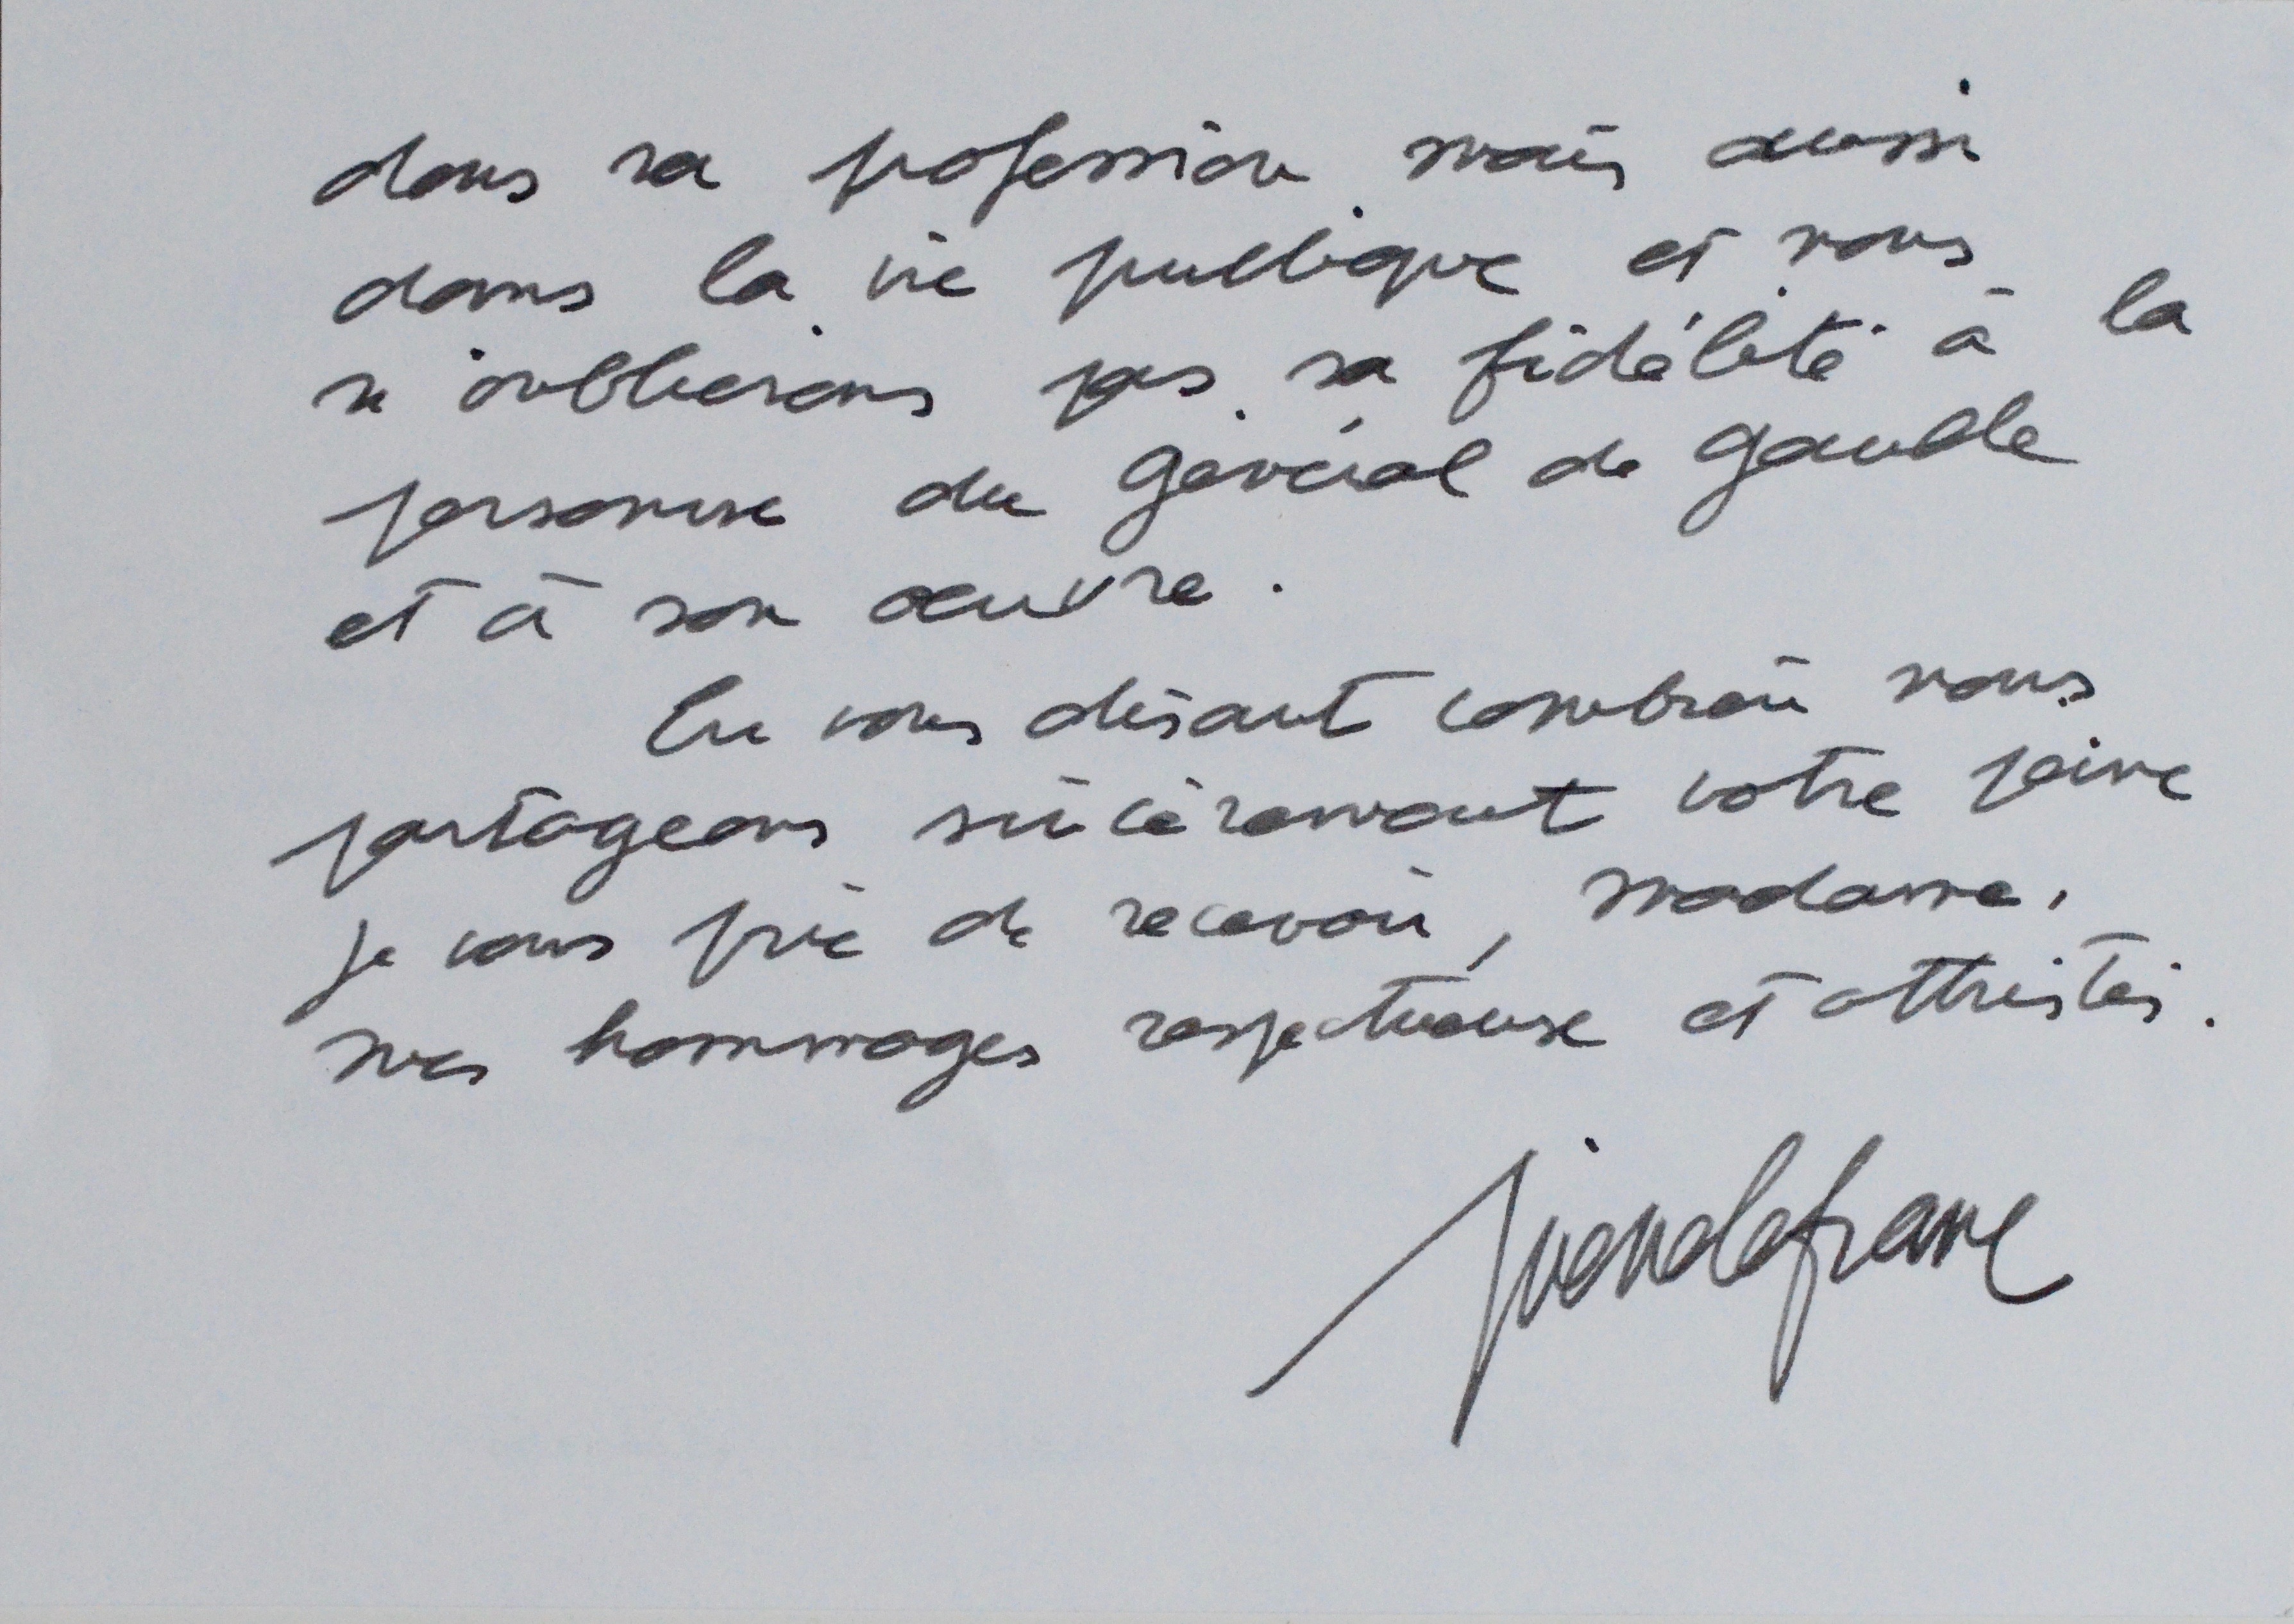 dans sa profession mais aussi
dans la vie publique et nous
n'oublierons pas sa fidélité à la
personne du Général de Gaulle
et à son oeuvre.
En vous disant combien nous
partageons sincèrement votre peine
je vous prie de recevoir, Madame,
mes hommages respectueux et attristés.